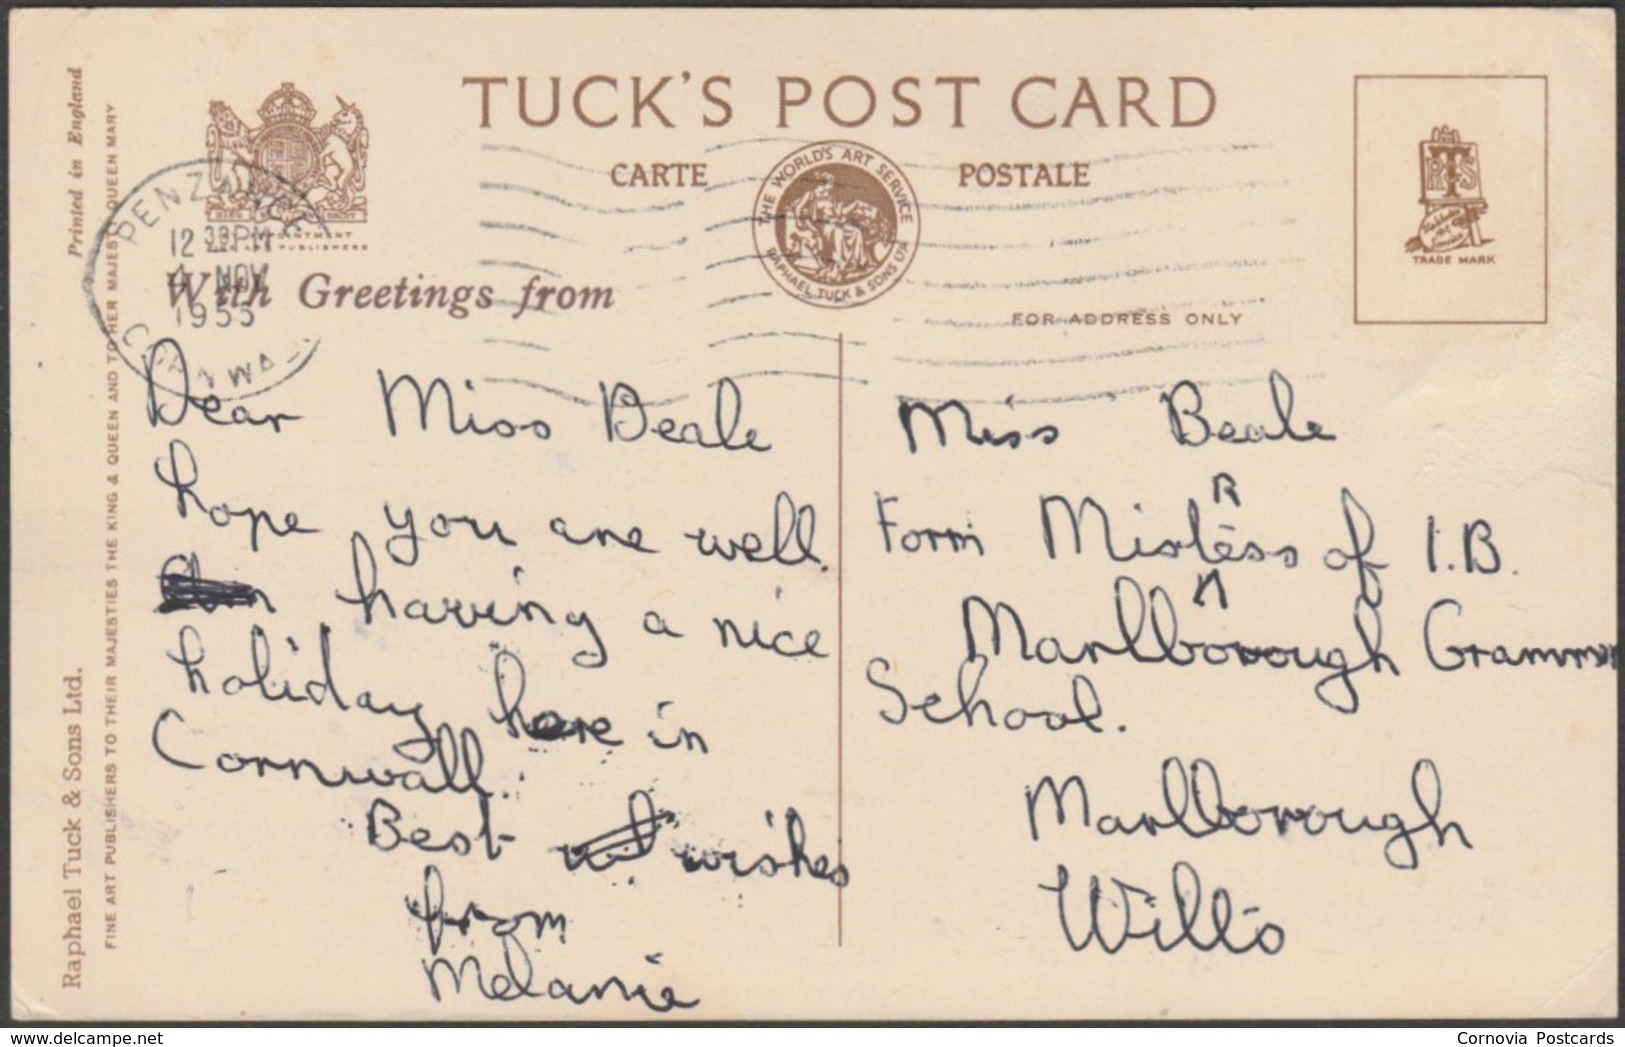 TUCK'S POST CARD
CARTE POSTALE
THE WORLD'S ART SERVICE
RAPHAEL TUCK & SONS LTD
TRADE MARK
FOR ADDRESS ONLY
PENZANCE
12 30PM
4 NOV
1955
CORNWALL
With Greetings from
Dear Miss Beale
hope you are well.
having a nice
holiday here in
Cornwall.
Best wishes
from
Melanie
Miss Beale
R
Form Mistess of 1.B.
Marlborough Grammar
School.
Marlborough
Wilts
Printed in England
Raphael Tuck & Sons Ltd.
FINE ART PUBLISHERS TO THEIR MAJESTIES THE KING & QUEEN AND TO HER MAJESTY QUEEN MARY
Cornovia Postcards